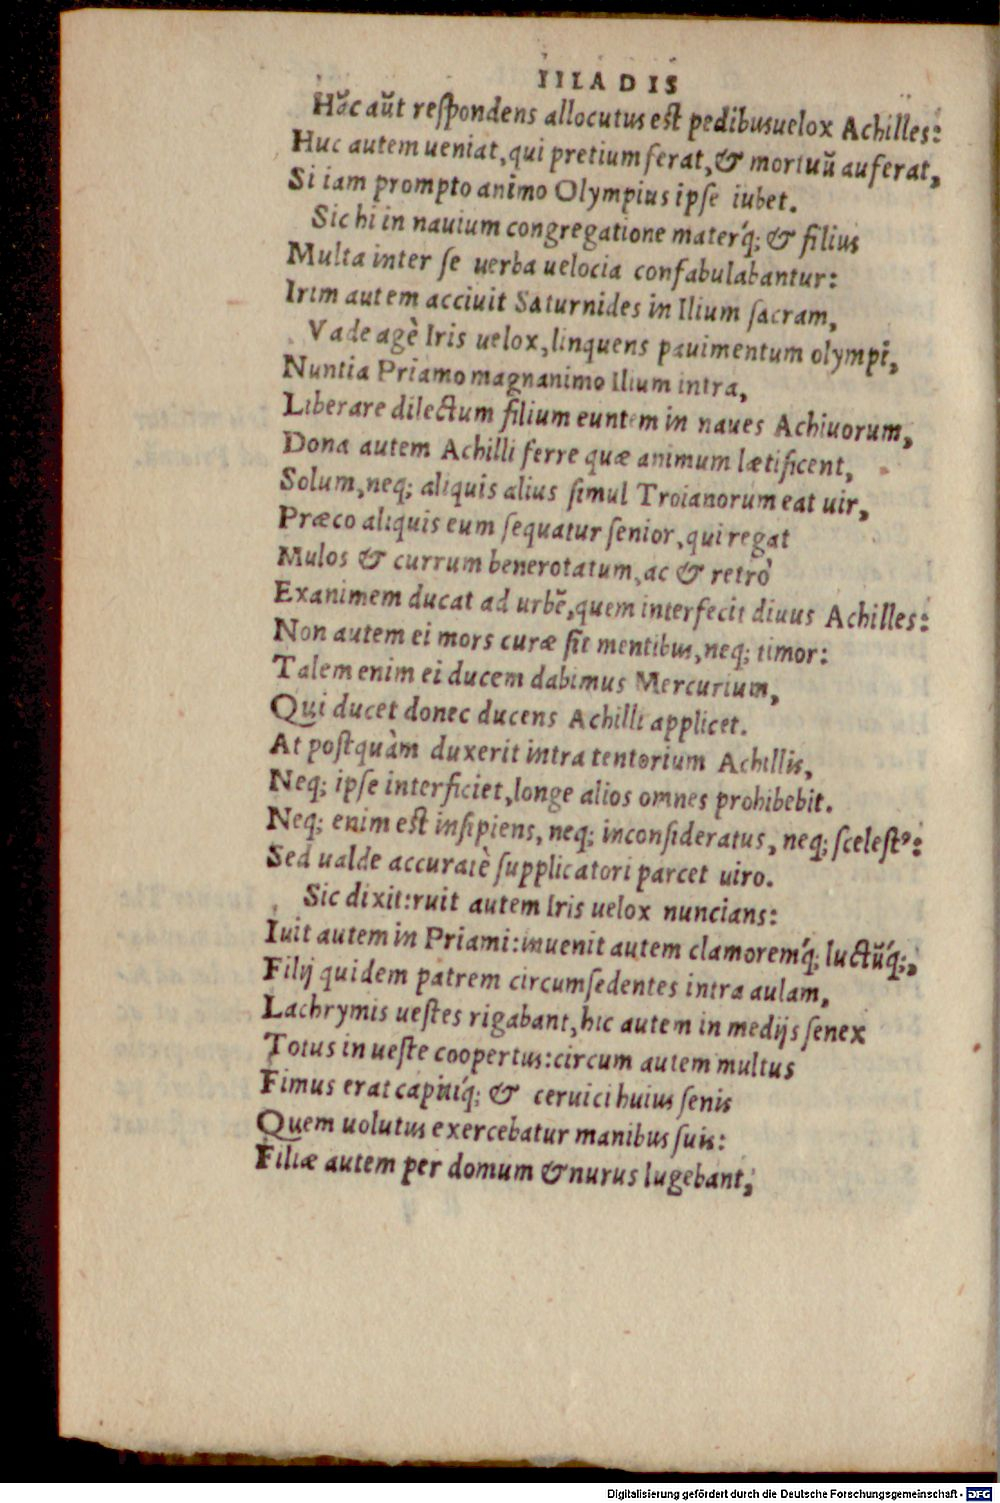 IIIADIS
Hãc aũt respondens allocutus est pedibusuelox Achilles:
Huc autem ueniat, qui pretium ferat, & mortuũ auferat,
Si iam prompto animo Olympius ipse iubet.
Sic hi in nauium congregatione materq́; & filius
Multa inter se uerba uelocia confabulabantur:
Irim autem acciuit Saturnides in Ilium sacram,
Vade agè Iris uelox, linquens pauimentum olympi,
Nuntia Priamo magnanimo Ilium intra,
Liberare dilectum filium euntem in naues Achiuorum,
Dona autem Achilli ferre quæ animum lætificent,
Solum, neq; aliquis alius simul Troianorum eat uir,
Præco aliquis eum sequatur senior, qui regat
Mulos & currum benerotatum, ac & retrò
Exanimem ducat ad urbẽ, quem interfecit diuus Achilles:
Non autem ei mors curæ sit mentibus, neq; timor:
Talem enim ei ducem dabimus Mercurium,
Qui ducet donec ducens Achilli applicet.
At postquàm duxerit intra tentorium Achillis,
Neq; ipse interficiet, longe alios omnes prohibebit.
Neq; enim est insipiens, neq; inconsideratus, neq; scelestꝰ:
Sed ualde accuratè supplicatori parcet uiro.
Sic dixit: ruit autem Iris uelox nuncians:
Iuit autem in Priami: inuenit autem clamoremq́; luctũq́;,
Filij quidem patrem circumsedentes intra aulam,
Lachrymis uestes rigabant, hic autem in medijs senex
Totus in ueste coopertus: circum autem multus
Fimus erat capitiq́; & ceruici huius senis
Quem uolutus exercebatur manibus suis:
Filiæ autem per domum & nurus lugebant,
Digitalisierung gefördert durch die Deutsche Forschungsgemeinschaft - DFG